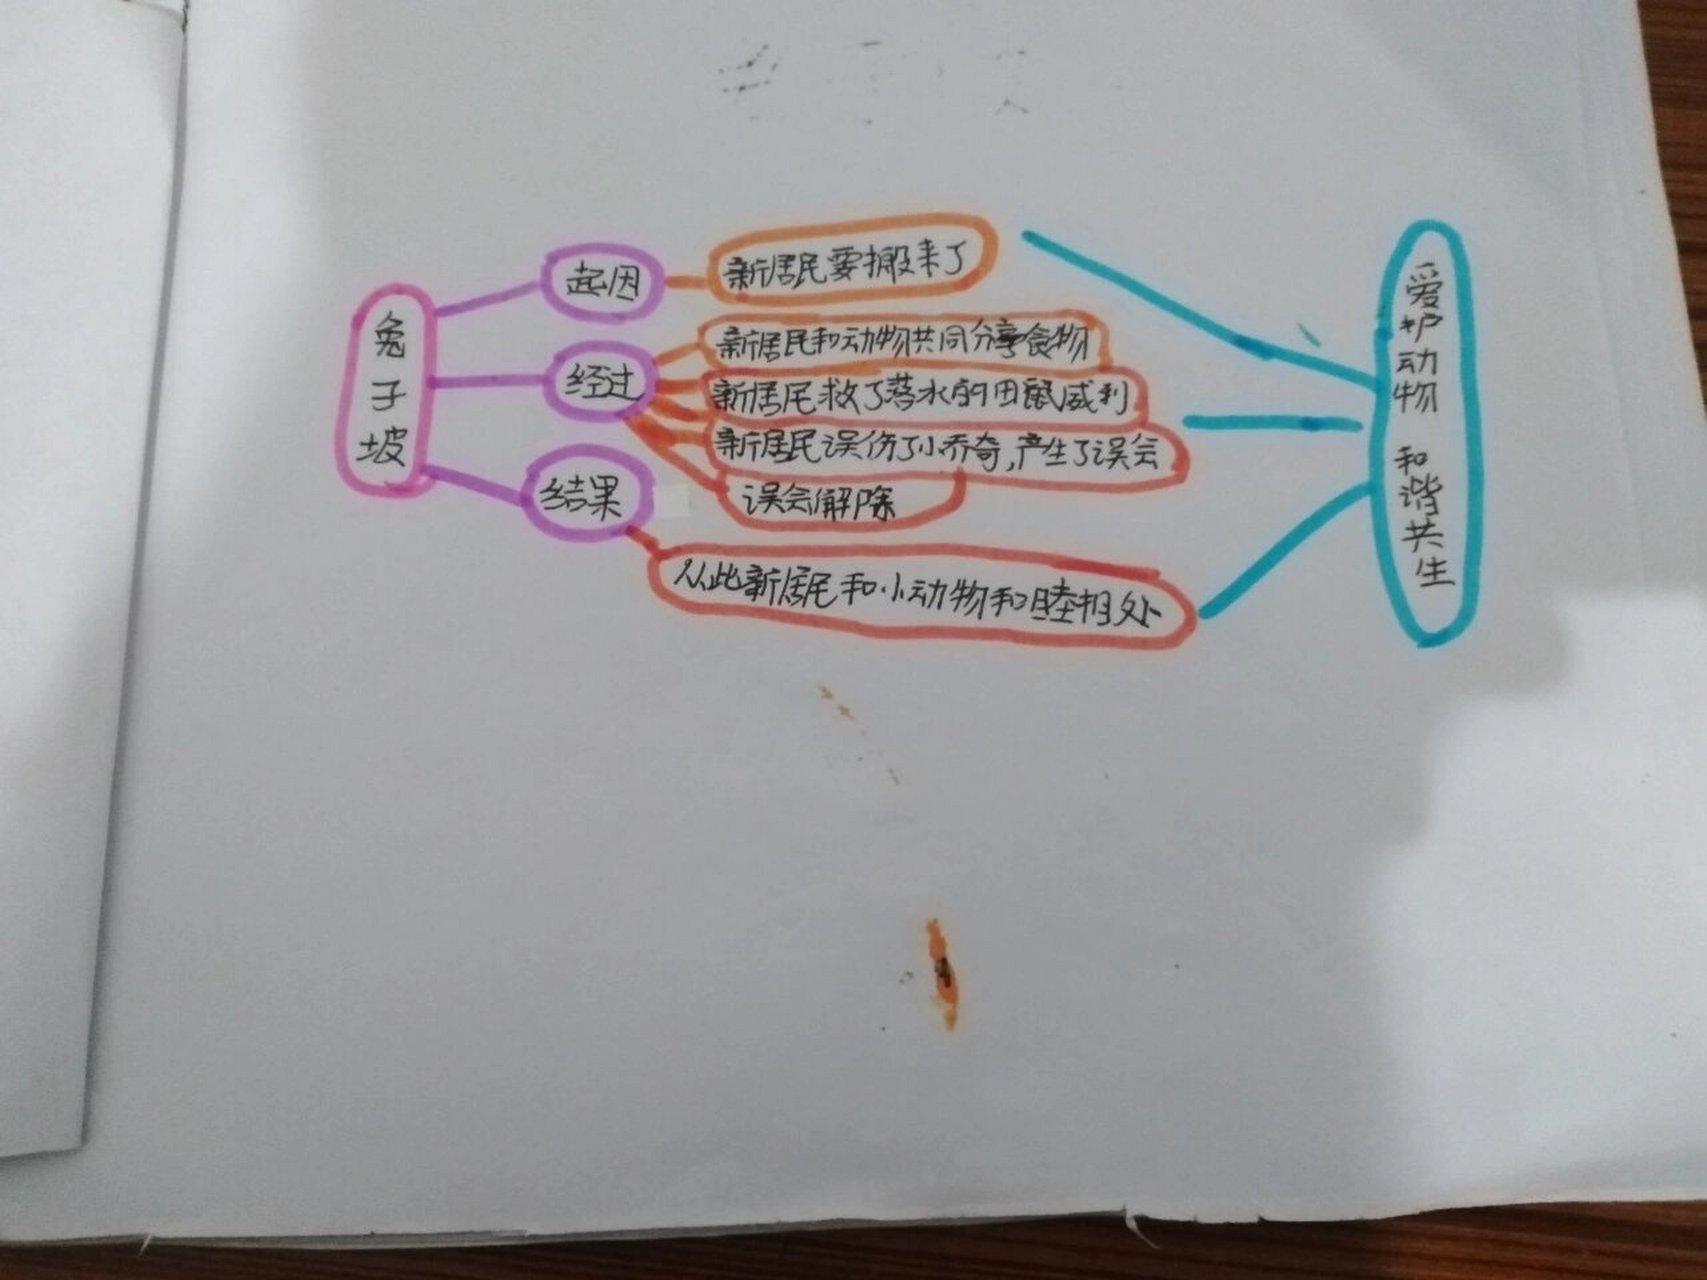 兔子坡
起因
新居民要搬来了
经过
新居民和动物共同分享食物
新居民救了落水的田鼠威利
新居民误伤了小乔奇,产生了误会
误会解除
结果
从此新居民和小动物和睦相处
爱护动物 和谐共生